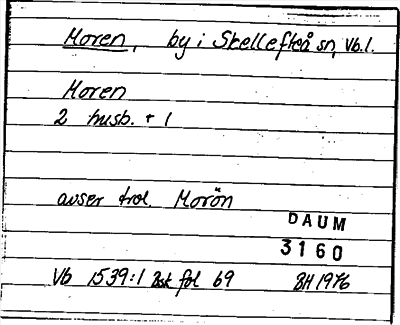 Moren, by i Skellefteå sn, Vb.l.
Moren
2 husb. + 1
avser trol. Morön
DAUM
3160
Vb 1539:1 Bsk fol 69 BH 1976